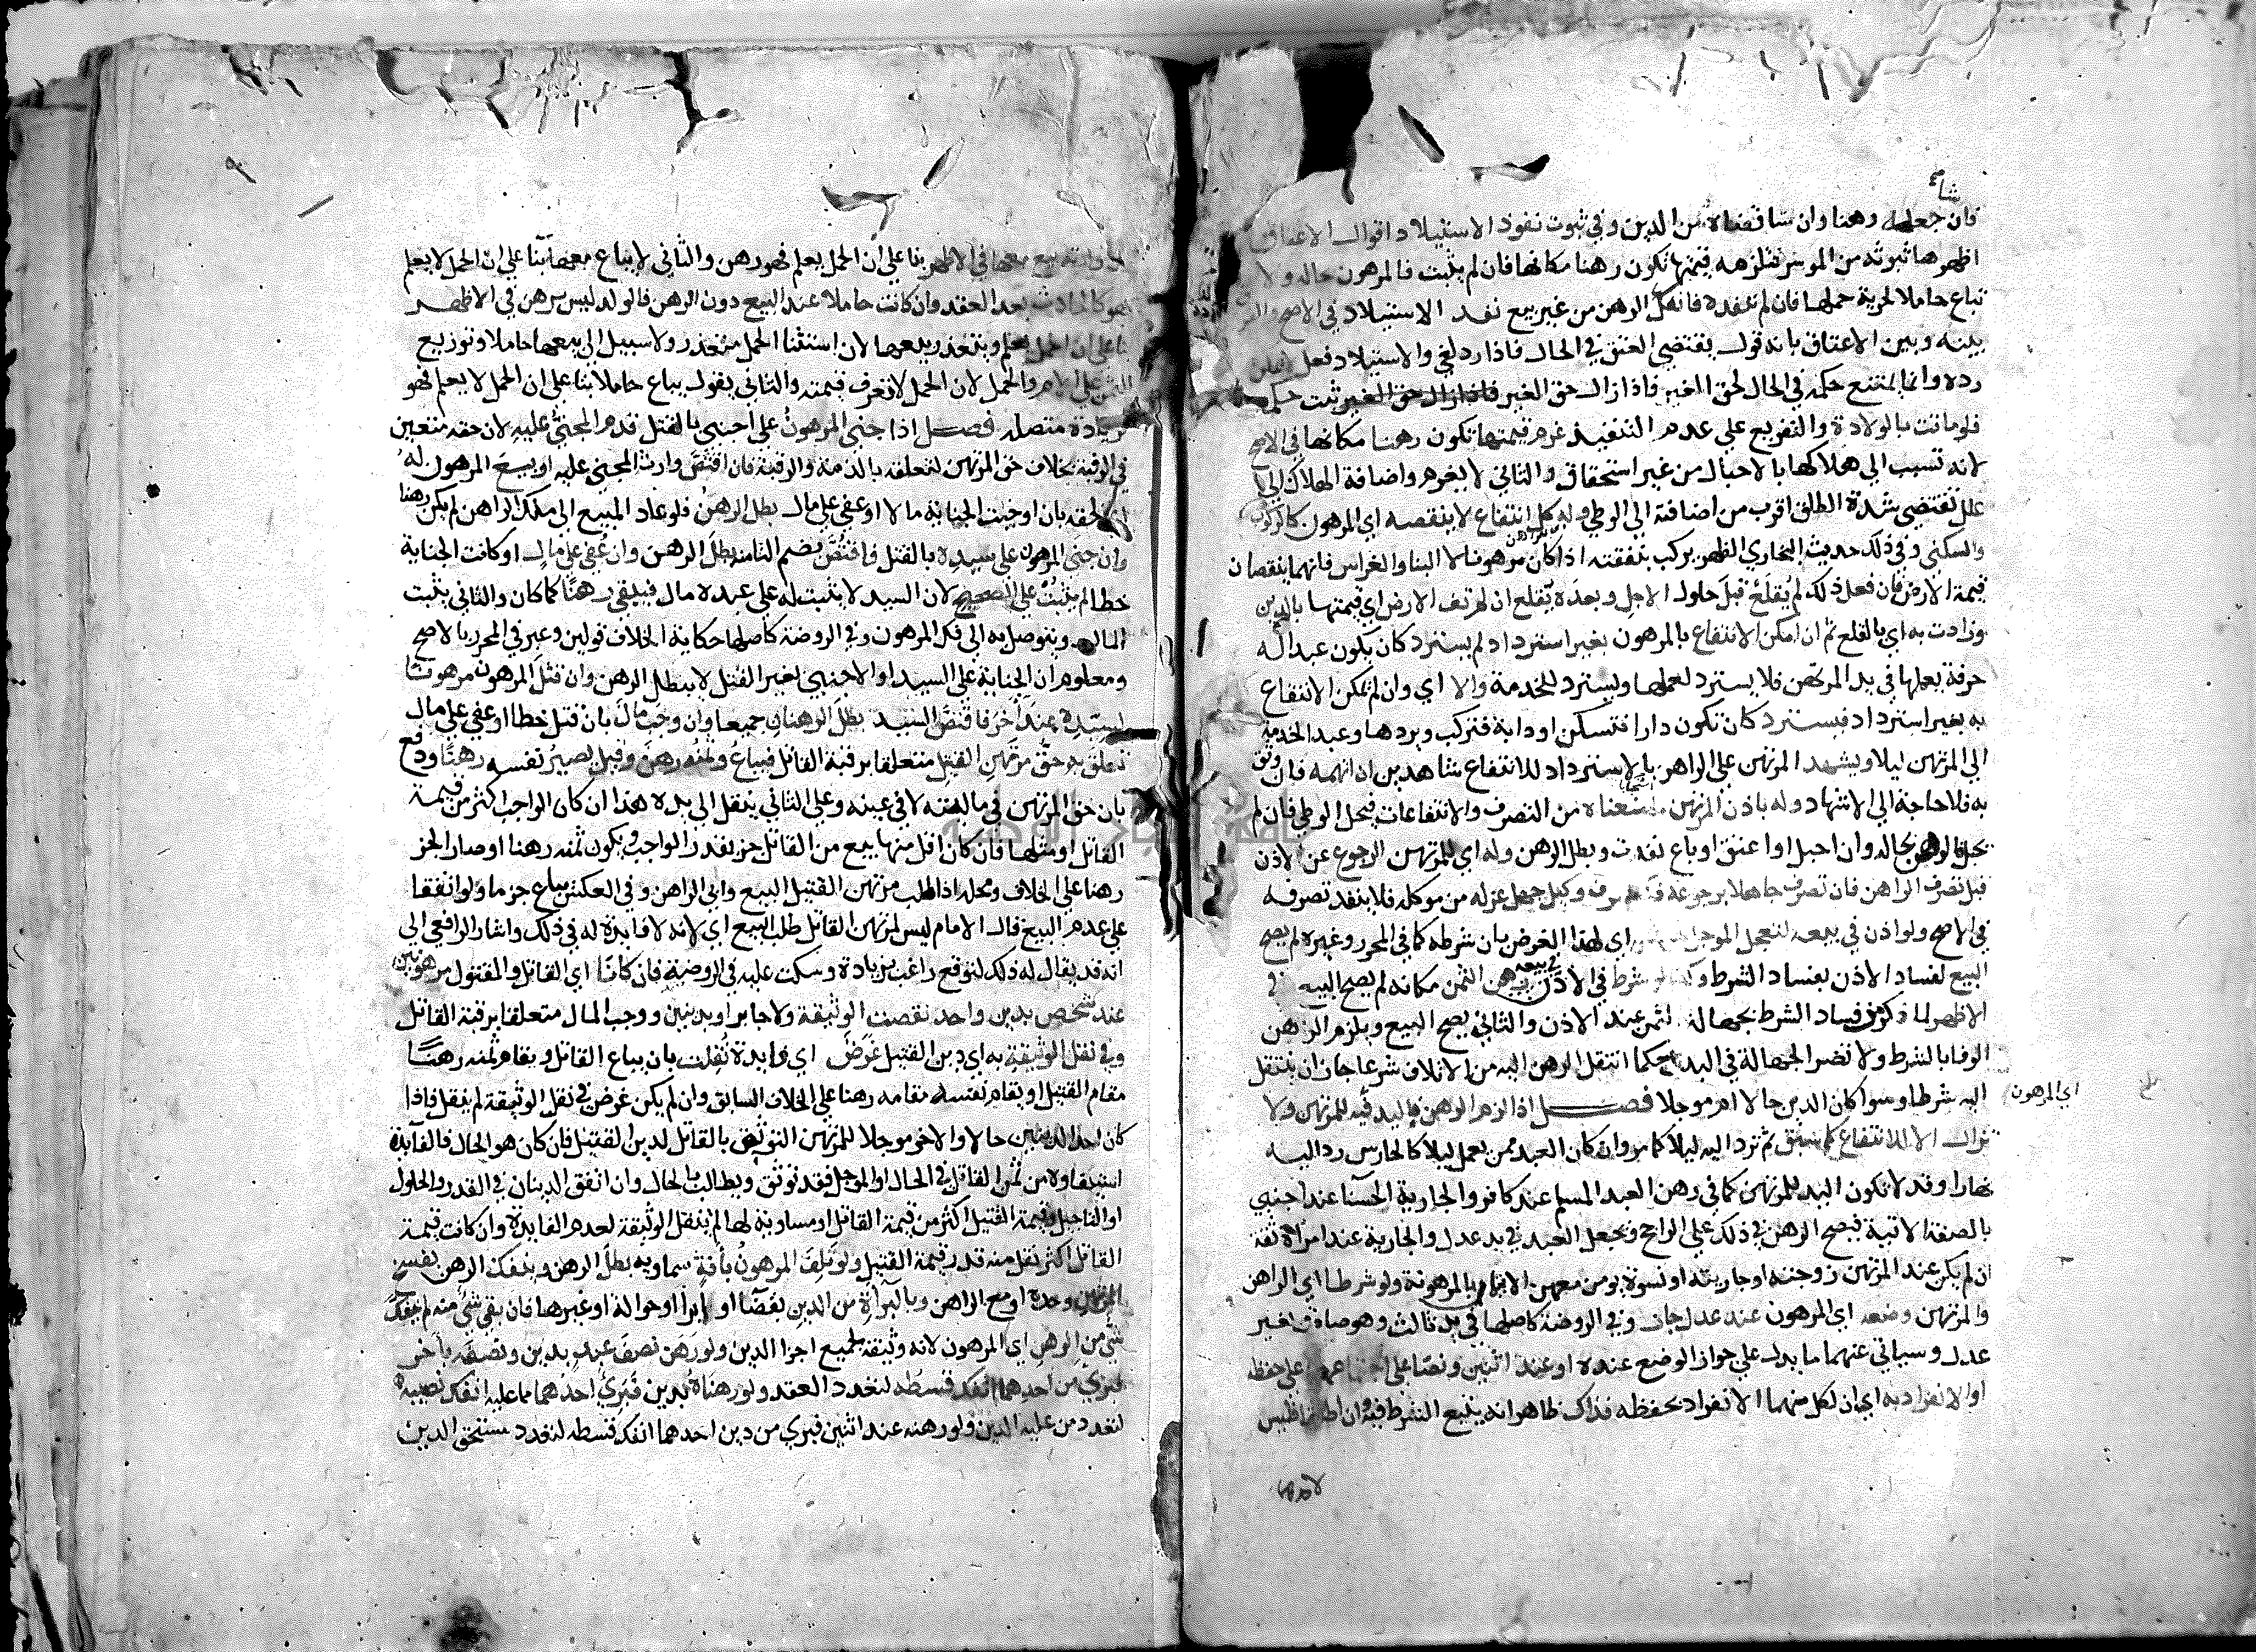 شا صح
فان جعله رهنا وان شا قضاه من الدين وفي ثبوت نفوذ الاستيلاد اقوال الاعتاق
اظهرها ثبوته من الموسر فتلزمه قيمتها تكون رهنا مكانها فان لم يثبت فالمرهون حاله ولا
تباع حاملا لحرية حملها فان لم ننفذه فانفك الرهن من غير بيع نفذ الاستيلاد في الاصح
بينه وبين الاعتاق بانه قول يقتضي العتق في الحال فاذا رد لغي والاستيلاد فعل لا يمكن
رده وانما يمتنع حكمه في الحال لحق الغير فاذا زال حق الغير فاذا زال حق الغير ثبت حكمه
فلو ماتت بالولادة والتفريع علي عدم التنفيذ غرم قيمتها تكون رهنا مكانها في الاصح
لانه تسبب الي هلاكها بالاحبال من غير استحقاق والثاني لا يغرم واضافة الهلاك الي
علل تقتضي شدة الطلق اقرب من اضافته الي الوطي وله كل انتفاع لا ينقصه اي المرهون كالركوب
والسكني وفي ذلك حديث البخاري الظهر يركب بنفقته اذا كان مرهونا لا البنا والغراس فانهما ينقصان
قيمة الارض فان فعل ذلك لم يقلع قبل حلول الاجل وبعده يقلع ان لم تف الارض اي قيمتها بالدين
وزادت به اي بالقلع ثم ان امكن الانتفاع بالمرهون بغير استرداد لم يسترد كان يكون عبدا له
حرفة يعملها في يد المرتهن فلا يسترد لعملها ويسترد للخدمة والا اي وان لم يمكن الانتفاع
به بغير استرداد فيسترد كان تكون دارا فتسكن او دابة فتركب ويردها وعبد الخدمة
الي المرتهن ليلا ويشهد المرتهن علي الراهن بالاسترداد للانتفاع شاهدين ان اتهمه فان وثق
به فلا حاجة الي الاشهاد وله باذن المرتهن ما منعناه من التصرف والانتفاعات فيحل الوطي فان لم
تحبل فالرهن بحاله وان احبل او اعتق او باع نفذت وبطل الرهن وله اي للمرتهن الرجوع عن الاذن
قبل تصرف الراهن فان تصرف جاهلا برجوعه فكتصرف وكيل جهل عزله من موكله فلا ينفذ تصرفه
في الاصح ولو اذن في بيعه لتعجل الموجل اي لهذا الغرض بان شرطه كما في المحرر وغيره لم يصح
البيع لفساد الاذن بفساد الشرط وكذا لو شرط في الاذن في بيعه رهن الثمن مكانه لم يصح البيع في
الاظهر لما ذكر من فساد الشرط بجهالة الثمن عند الاذن والثاني يصح البيع ويلزم الراهن
الوفا بالشرط ولا تضر الجهالة في البدل حكما انتقل الرهن اليه من الاتلاف شرعا جاز ان ينتقل
اليه شرطا وسوا كان الدين حالا ام موجلا فصل اذا لزم الرهن فاليد فيه للمرتهن ولا
اي المرهون
تزال الا للانتفاع كما سبق ثم ترد اليه ليلا كما مر وان كان العبد ممن يعمل ليلا كالحارس رد اليه
نهارا وقد لا تكون اليد للمرتهن كما في رهن العبد المسلم عند كافر والجارية الحسنا عند اجنبي
بالصفة الاتية فيصح الرهن في ذلك علي الراجح ويجعل العبد في يد عدل والجارية عند امراة ثقة
ان لم يكن عند المرتهن زوجته او جاريته او نسوة يومن معهن الالمام بالمرهونة ولو شرطا اي الراهن
والمرتهن وضعه اي المرهون عند عدل جاز وفي الروضة كاصلها في يد ثالث وهو صادق بغير
عدل وسياتي عنهما ما يدل علي جواز الوضع عنده او عند اثنين ونصا علي اجتماعهما علي حفظه
او الانفراد به اي ان لكل منهما الانفراد بحفظه فذاك ظاهر انه يتبع الشرط فيه وان اطلقا فليس
لاحدهما
بيع معها في الاظهر بنا علي ان الحمل يعلم فهو رهن والثاني لا يباع معها بنا علي ان الحمل لا يعلم
فهو كالحادث بعد العقد وان كانت حاملا عند البيع دون الرهن فالولد ليس برهن في الاظهر
بنا علي ان الحمل يعلم ويتعذر بيعها لان استثنا الحمل متعذر ولا سبيل الي بيعها حاملا وتوزيع
الثمن علي الام والحمل لان الحمل لا تعرف قيمته والثاني يقول يباع حاملا بنا علي ان الحمل لا يعلم فهو
كزيادة متصله فصل اذا جني المرهون علي اجنبي بالقتل قدم المجني عليه لان حقه متعين
في الرقبة بخلاف حق المرتهن لتعلقه بالذمة والرقبة فان اقتص وارث المجني عليه او بيع المرهون له
لحقه بان اوجبت الجناية مالا او عفي علي مال بطل الرهن فلو عاد المبيع الي ملك الراهن لم يكن رهنا
وان جني المرهون علي سيده بالقتل فاقتص بضم التا منه بطل الرهن وان عفي علي مال او كانت الجناية
خطا لم يثبت علي الصحيح لان السيد لا يثبت له علي عبده مال فيبقي رهنا كما كان والثاني يثبت
المال ويتوصل به الي فك المرهون وفي الروضة كاصلها حكاية الخلاف قولين وعبر في المحرر بالاصح
ومعلوم ان الجناية علي السيد او الاجنبي بغير القتل لا يبطل الرهن وان قتل المرهون مرهونا
لسيده عند اخر فاقتص السيد بطل الرهنان جميعا وان وجب مال بان قتل خطا او عفي علي مال
تعلق به حق مرتهن القتيل متعلقا برقبة القاتل فيباع وثمنه رهن وقيل يصير نفسه رهنا ودفع
بان حق المرتهن في ماليته لا في عينه وعلي الثاني ينقل الي يده هذا ان كان الواجب اكثر من قيمة
القاتل او مثلها فان كان اقل منها بيع من القاتل جز بقدر الواجب ويكون ثمنه رهنا او صار الجز
رهنا علي الخلاف ومحله اذا طلب مرتهن القتيل البيع وابي الراهن وفي العكس يباع جزما ولو اتفقا
علي عدم البيع قال الامام ليس لمرتهن القاتل طلب البيع اي لانه لا فايدة له في ذلك واشار الرافعي الي
انه قد يقال له ذلك لتوقع راغب بزيادة وسكت عليه في الروضة فان كانا اي القاتل والمقتول مرهونين
عند شخص بدين واحد نقصت الوثيقة ولا جابر او بدينين ووجب المال متعلقا برقبة القاتل
وفي نقل الوثيقة به اي دين القتيل غرض اي فايدة نقلت بان يباع القاتل ويقام ثمنه رهنا
مقام القتيل او يقام نفسه مقامه رهنا علي الخلاف السابق وان لم يكن غرض في نقل الوثيقة لم ينقل فاذا
كان احد الدينين حالا والاخر موجلا للمرتهن التوثق بالقاتل لدين القتيل فان كان هو الحال فالفايدة
استيفاوه من ثمن القاتل في الحال او الموجل فقد توثق ويطالب بالحال وان اتفق الدينان في القدر والحلول
او التاجيل وقيمة القتيل اكثر من قيمة القاتل او مساوية لها لم ينقل الوثيقة لعدم الفايدة وان كانت قيمة
القاتل اكثر نقل منه قدر قيمة القتيل ولو تلف المرهون بافة سماوية بطل الرهن وينفك الرهن بفسخ
المرتهن وحده او مع الراهن وبالبراة من الدين بقضا او ابرا او حوالة او غيرها فان بقي شي منه لم ينفك
شي من الرهن اي المرهون لانه وثيقة لجميع اجزا الدين ولو رهن نصف عبد بدين ونصفه باخر
فبري من احدهما انفك قسطه لتعدد العقد ولو رهناه بدين فبري احدهما مما عليه انفك نصيبه
لتعدد من عليه الدين ولو رهنه عند اثنين فبري من دين احدهما انفك قسطه لتعدد مستحق الدين